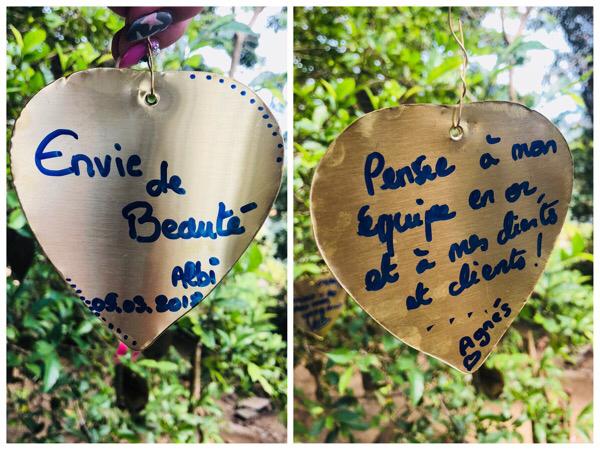 Envie
de
Beauté
Albi
09.03.2018
Pensée à mon
équipe en or
et à mes clients
et clients !
.....
Agnès